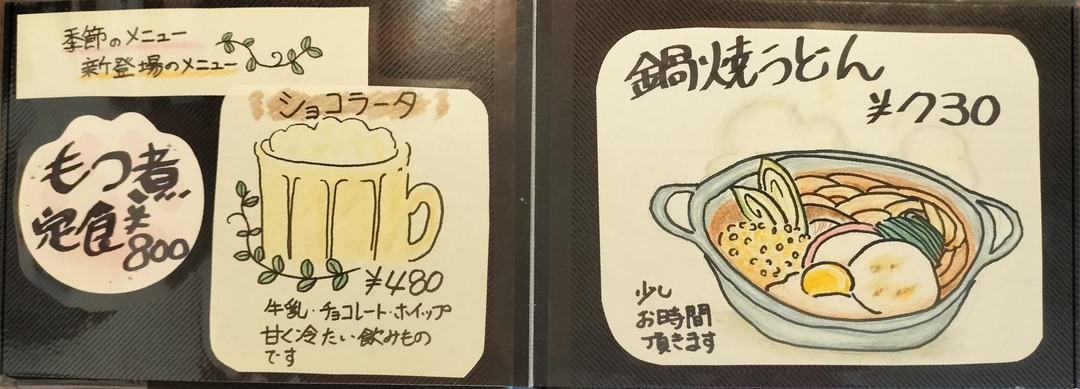 季節のメニュー
新登場のメニュー
もつ煮
定食¥
800
ショコラータ
¥480
牛乳・チョコレート・ホイップ
甘く冷たい飲みもの
です
鍋焼うどん
¥730
少し
お時間
頂きます